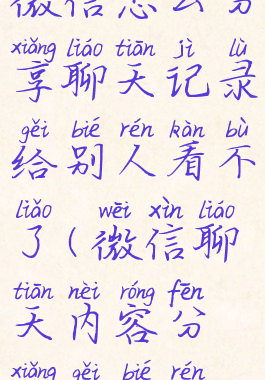 微信怎么分
xiǎng liáo tiān jì lù
享聊天记录
gěi bié rén kàn bù
给别人看不
liǎo wēi xìn liáo
了(微信聊
tiān nèi róng fēn
天内容分
xiǎng gěi bié rén